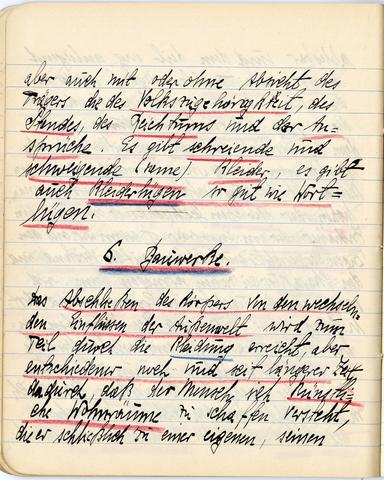 aber auch mit oder ohne Absicht des
Trägers die des Volkszugehörigkeit, des
Standes, des Reichtums und der An-
sprüche. Es gibt schreiende und
schweigende Kleider, es gibt
auch Kleiderlügen so gut wie Wort-
lügen.
6. Bauwerke.
Das Abschließen des Körpers von den wechseln-
den Einflüssen der Außenwelt wird zum
Teil durch die Kleidung erreicht, aber
entschiedener noch und seit längerer Zeit
dadurch, daß der Mensch sich künstli-
che Wohnräume zu schaffen versteht,
die er schließlich zu einer eigenen, seinen